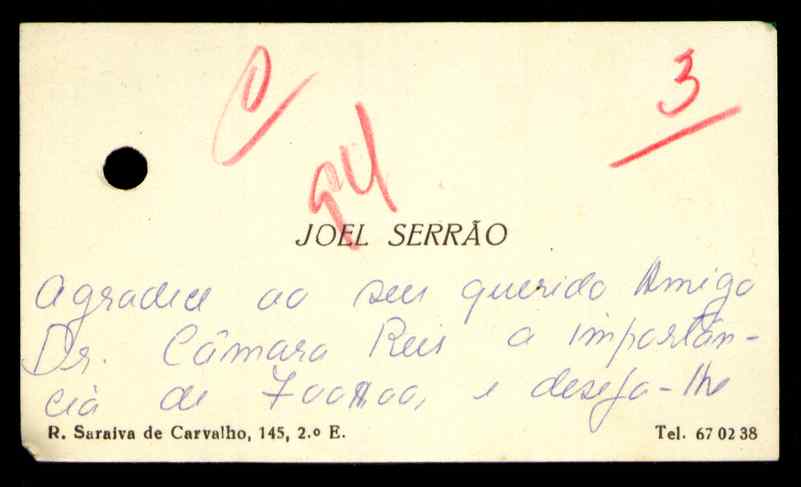 C
94
3
JOEL SERRÃO
Agradece ao seu querido Amigo
Dr. Câmara Reis a importân-
cia de 700$00, e deseja-lhe
R. Saraiva de Carvalho, 145, 2.º E.
Tel. 67 02 38